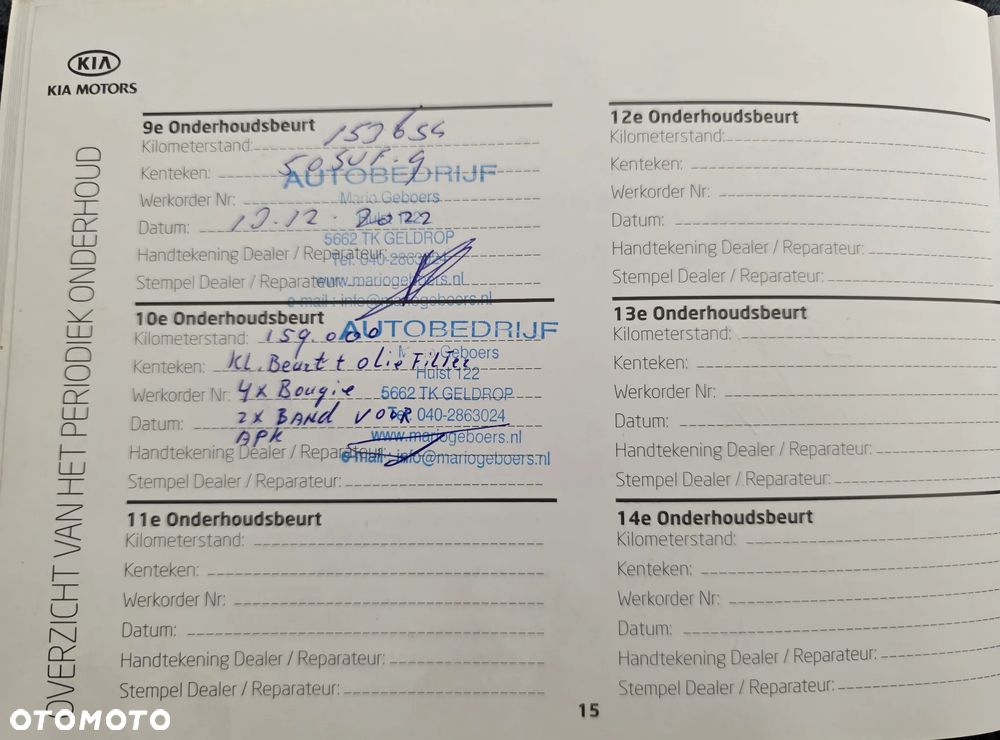 KIA
KIA MOTORS
OVERZICHT VAN HET PERIODIEK ONDERHOUD
9e Onderhoudsbeurt
Kilometerstand: 153654
Kenteken:
AUTOBEDRIJF
Werkorder Nr:
Mario Geboers
Datum:
Hulst 122
5662 TK GELDROP
Handtekening Dealer / Reparateur:
Tel. 040-2863024
Stempel Dealer / Reparateur:
www.mariogeboers.nl
e-mail : info@mariogeboers.nl
10e Onderhoudsbeurt
AUTOBEDRIJF
Kilometerstand: 159.000
Geboers
Kenteken: KL. Beurt + olie Filter
Hulst 122
Werkorder Nr: 4x Bougie
5662 TK GELDROP
Datum: 2x BAND VOOR
Tel. 040-2863024
APK
www.mariogeboers.nl
Handtekening Dealer / Reparateur:
e-mail : info@mariogeboers.nl
Stempel Dealer / Reparateur:
11e Onderhoudsbeurt
Kilometerstand:
Kenteken:
Werkorder Nr:
Datum:
Handtekening Dealer / Reparateur:
Stempel Dealer / Reparateur:
12e Onderhoudsbeurt
Kilometerstand:
Kenteken:
Werkorder Nr:
Datum:
Handtekening Dealer / Reparateur:
Stempel Dealer / Reparateur:
13e Onderhoudsbeurt
Kilometerstand:
Kenteken:
Werkorder Nr:
Datum:
Handtekening Dealer / Reparateur:
Stempel Dealer / Reparateur:
14e Onderhoudsbeurt
Kilometerstand:
Kenteken:
Werkorder Nr:
Datum:
Handtekening Dealer / Reparateur:
Stempel Dealer / Reparateur:
15
OTOMOTO